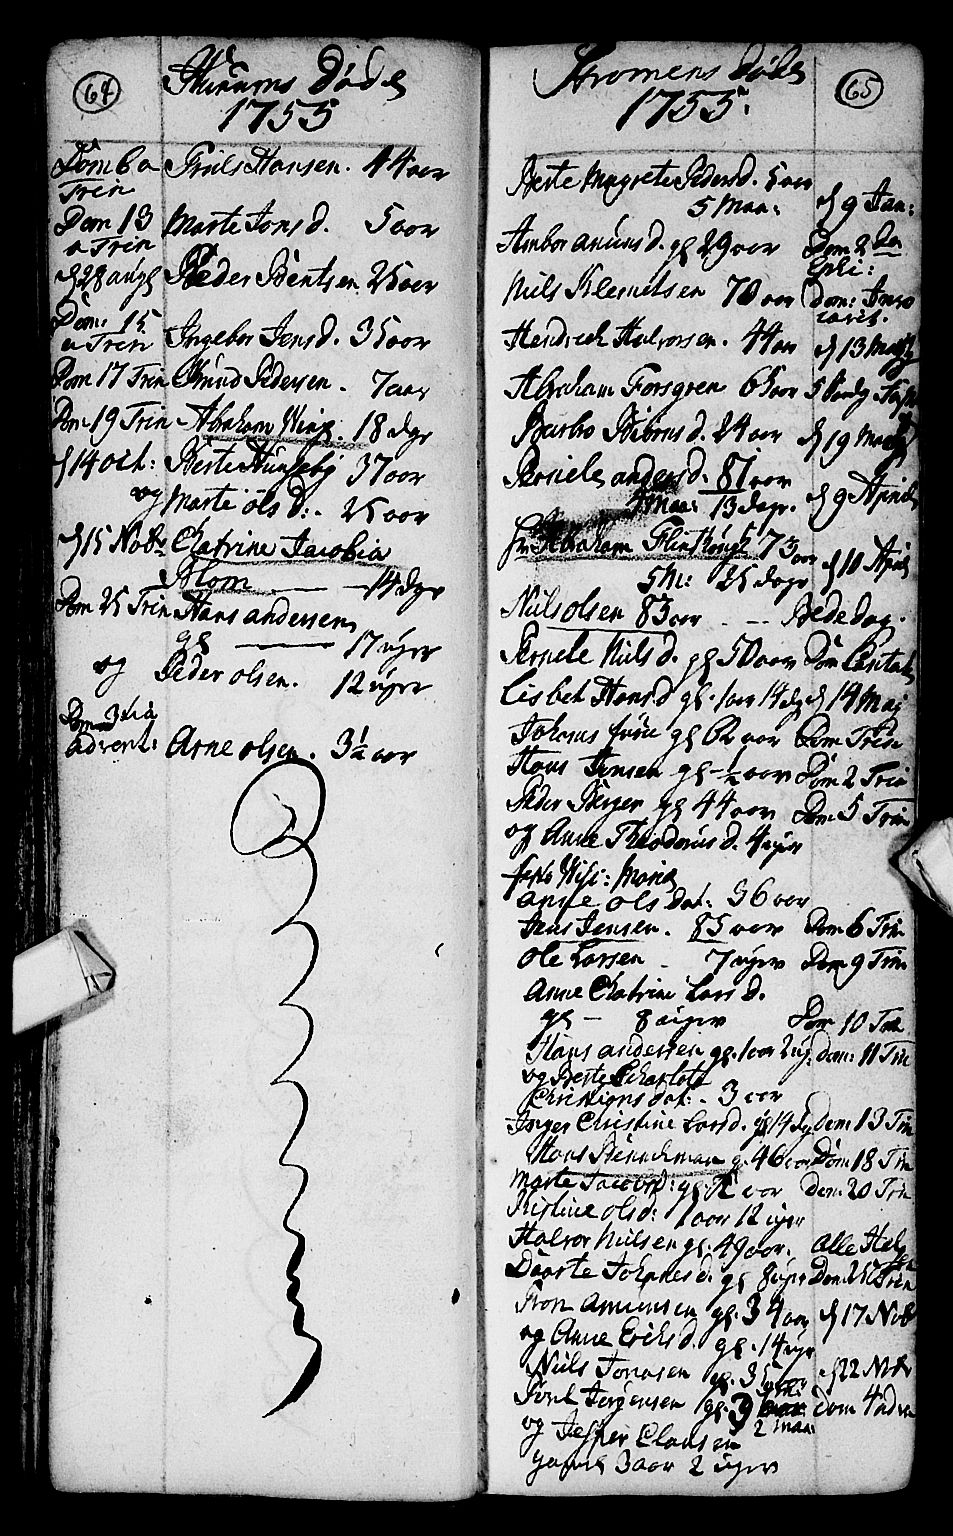 64
Hurums Døde
1755
Dom 6 a Truls Hansen. 44 aar
Trin
Dom 13 Marte Jonsd. 5 aar
a Trin
d 28 aug Peder Bentsen 25 aar
Dom: 15 Ingebor Jensd. 35 aar
a Trin
Dom 17 Trin Knud Pedersen. 7 aar
Dom 19 Trin Abraham Wing. 18 dgr
d 14 oct: Berte Hunseby 37 aar
og Marte olsd: 25 aar
d 15 Nobr Chatrine Jacobia
Blom 14 dgr
Dom 25 Trin Hans andersen
gl 17 uger
og Peder olsen. 12 uger
Dom 3tia
advent: Arne olsen. 3½ aar
65
Stromens Døde
1755.
Berte Magrete Pedersd. 5 aar
5 Maa: d 9 Jan:
Ambor amunsd. gl 29 aar Dom 2 da
Epi:
Nils Klemetsen 70 aar Dom: Invo
cavit.
Hendrich Halvorsen. 44 aar d 13 Martz
Abraham Forsgren 65 aar
Barbo Biörnsd. 24 aar d 19 Martz
Pernele andersd. 81 aar
Maa: 13 dage. d 9 April
Abraham Flintkong 73 aar
5 M: 25 dage d 11 April
Niels olsen 83 aar - -- Bededag.
Pernele Nilsd. gl 50 aar Dom Cantate
Lisbet Hansd gl. 1 aar 14 dg d 14 Maj
Johans gl 62 aar Dom Trin
Hans Jensen gl - ½ aar Dom 2 Trin
Peder Berger gl 44 aar Dom 5 Trin
og Anne Theodorusd. 4 uger
Maria
anne olsdat: 36 aar
Jens Jensen. 83 aar Dom 6 Trin
Ole Larsen - 7 uger Dom 9 Trin
Anne Chatrine Larsd.
gl - 8 uger Dom 10 Trin
Hans andersen gl. 1 aar 2 ug: dom: 11 Trin
og Berte Scharlott
Christiansdat: - 3 aar
Inger Christine Larsd. gl 14 dg dom: 13 Trin
Hans Bennichman g. 46 aar Dom 18 Trin
Marte Jacobsd: gl. 72 aar Dom: 20 Trin
Kistine olsd: 1 aar 12 uger
Halvor Nielsen gl. 49 aar. Alle Helgen
Dorte Johannesd. gl 8 uger Dom 25 Trin
Tron Amunsen gl. 34 aar d 17 Nob
og Anne Eriksd. gl. 14 ugr
Niels Jonasen gl. 35 aar d 22 Nobr
Poul Jørgensen gl. 9 dom 4 adven
2 maa
og Jesper Clausen
gamel 3 aar 2 uger